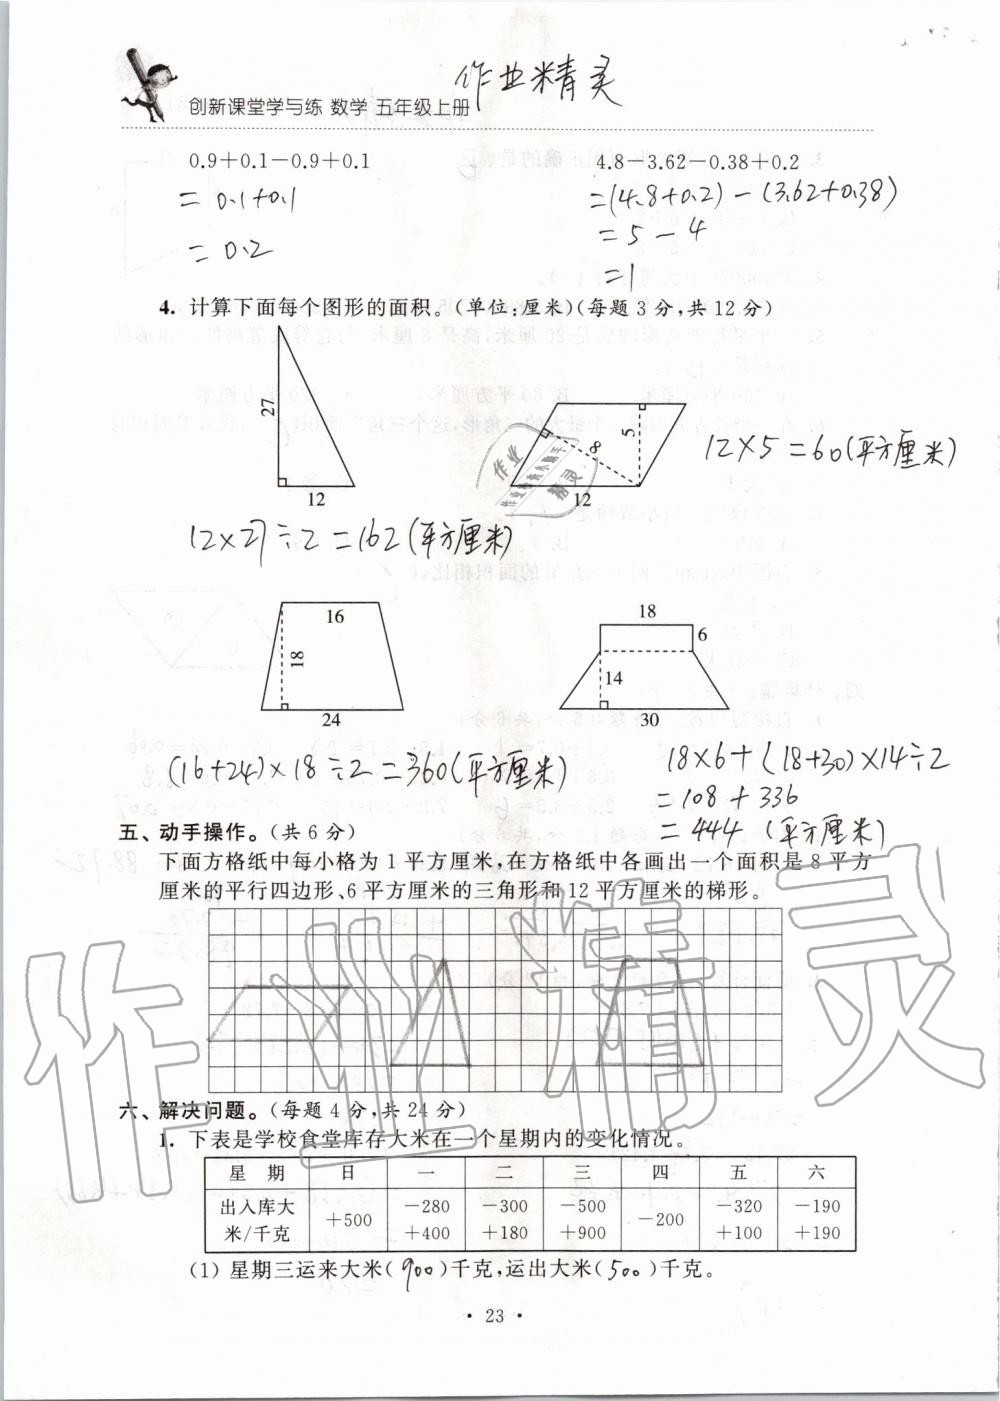 作业精灵
创新课堂学与练 数学 五年级上册
0.9+0.1-0.9+0.1
4.8-3.62-0.38+0.2
=0.1+0.1
=(4.8+0.2)-(3.62+0.38)
=0.2
=5-4
=1
4. 计算下面每个图形的面积。(单位:厘米)(每题3分,共12分)
27
12
5
8
12
12×5=60(平方厘米)
12×27÷2=162(平方厘米)
16
18
24
18
6
14
30
(16+24)×18÷2=360(平方厘米)
18×6+(18+30)×14÷2
=108+336
=444 (平方厘米)
五、动手操作。(共6分)
下面方格纸中每小格为1平方厘米,在方格纸中各画出一个面积是8平方
厘米的平行四边形、6平方厘米的三角形和12平方厘米的梯形。
作业精灵
六、解决问题。(每题4分,共24分)
1. 下表是学校食堂库存大米在一个星期内的变化情况。
星 期 日 一 二 三 四 五 六
出入库大米/千克 +500 -280 +400 -300 +180 -500 +900 -200 -320 +100 -190 +190
(1) 星期三运来大米(900)千克,运出大米(500)千克。
· 23 ·